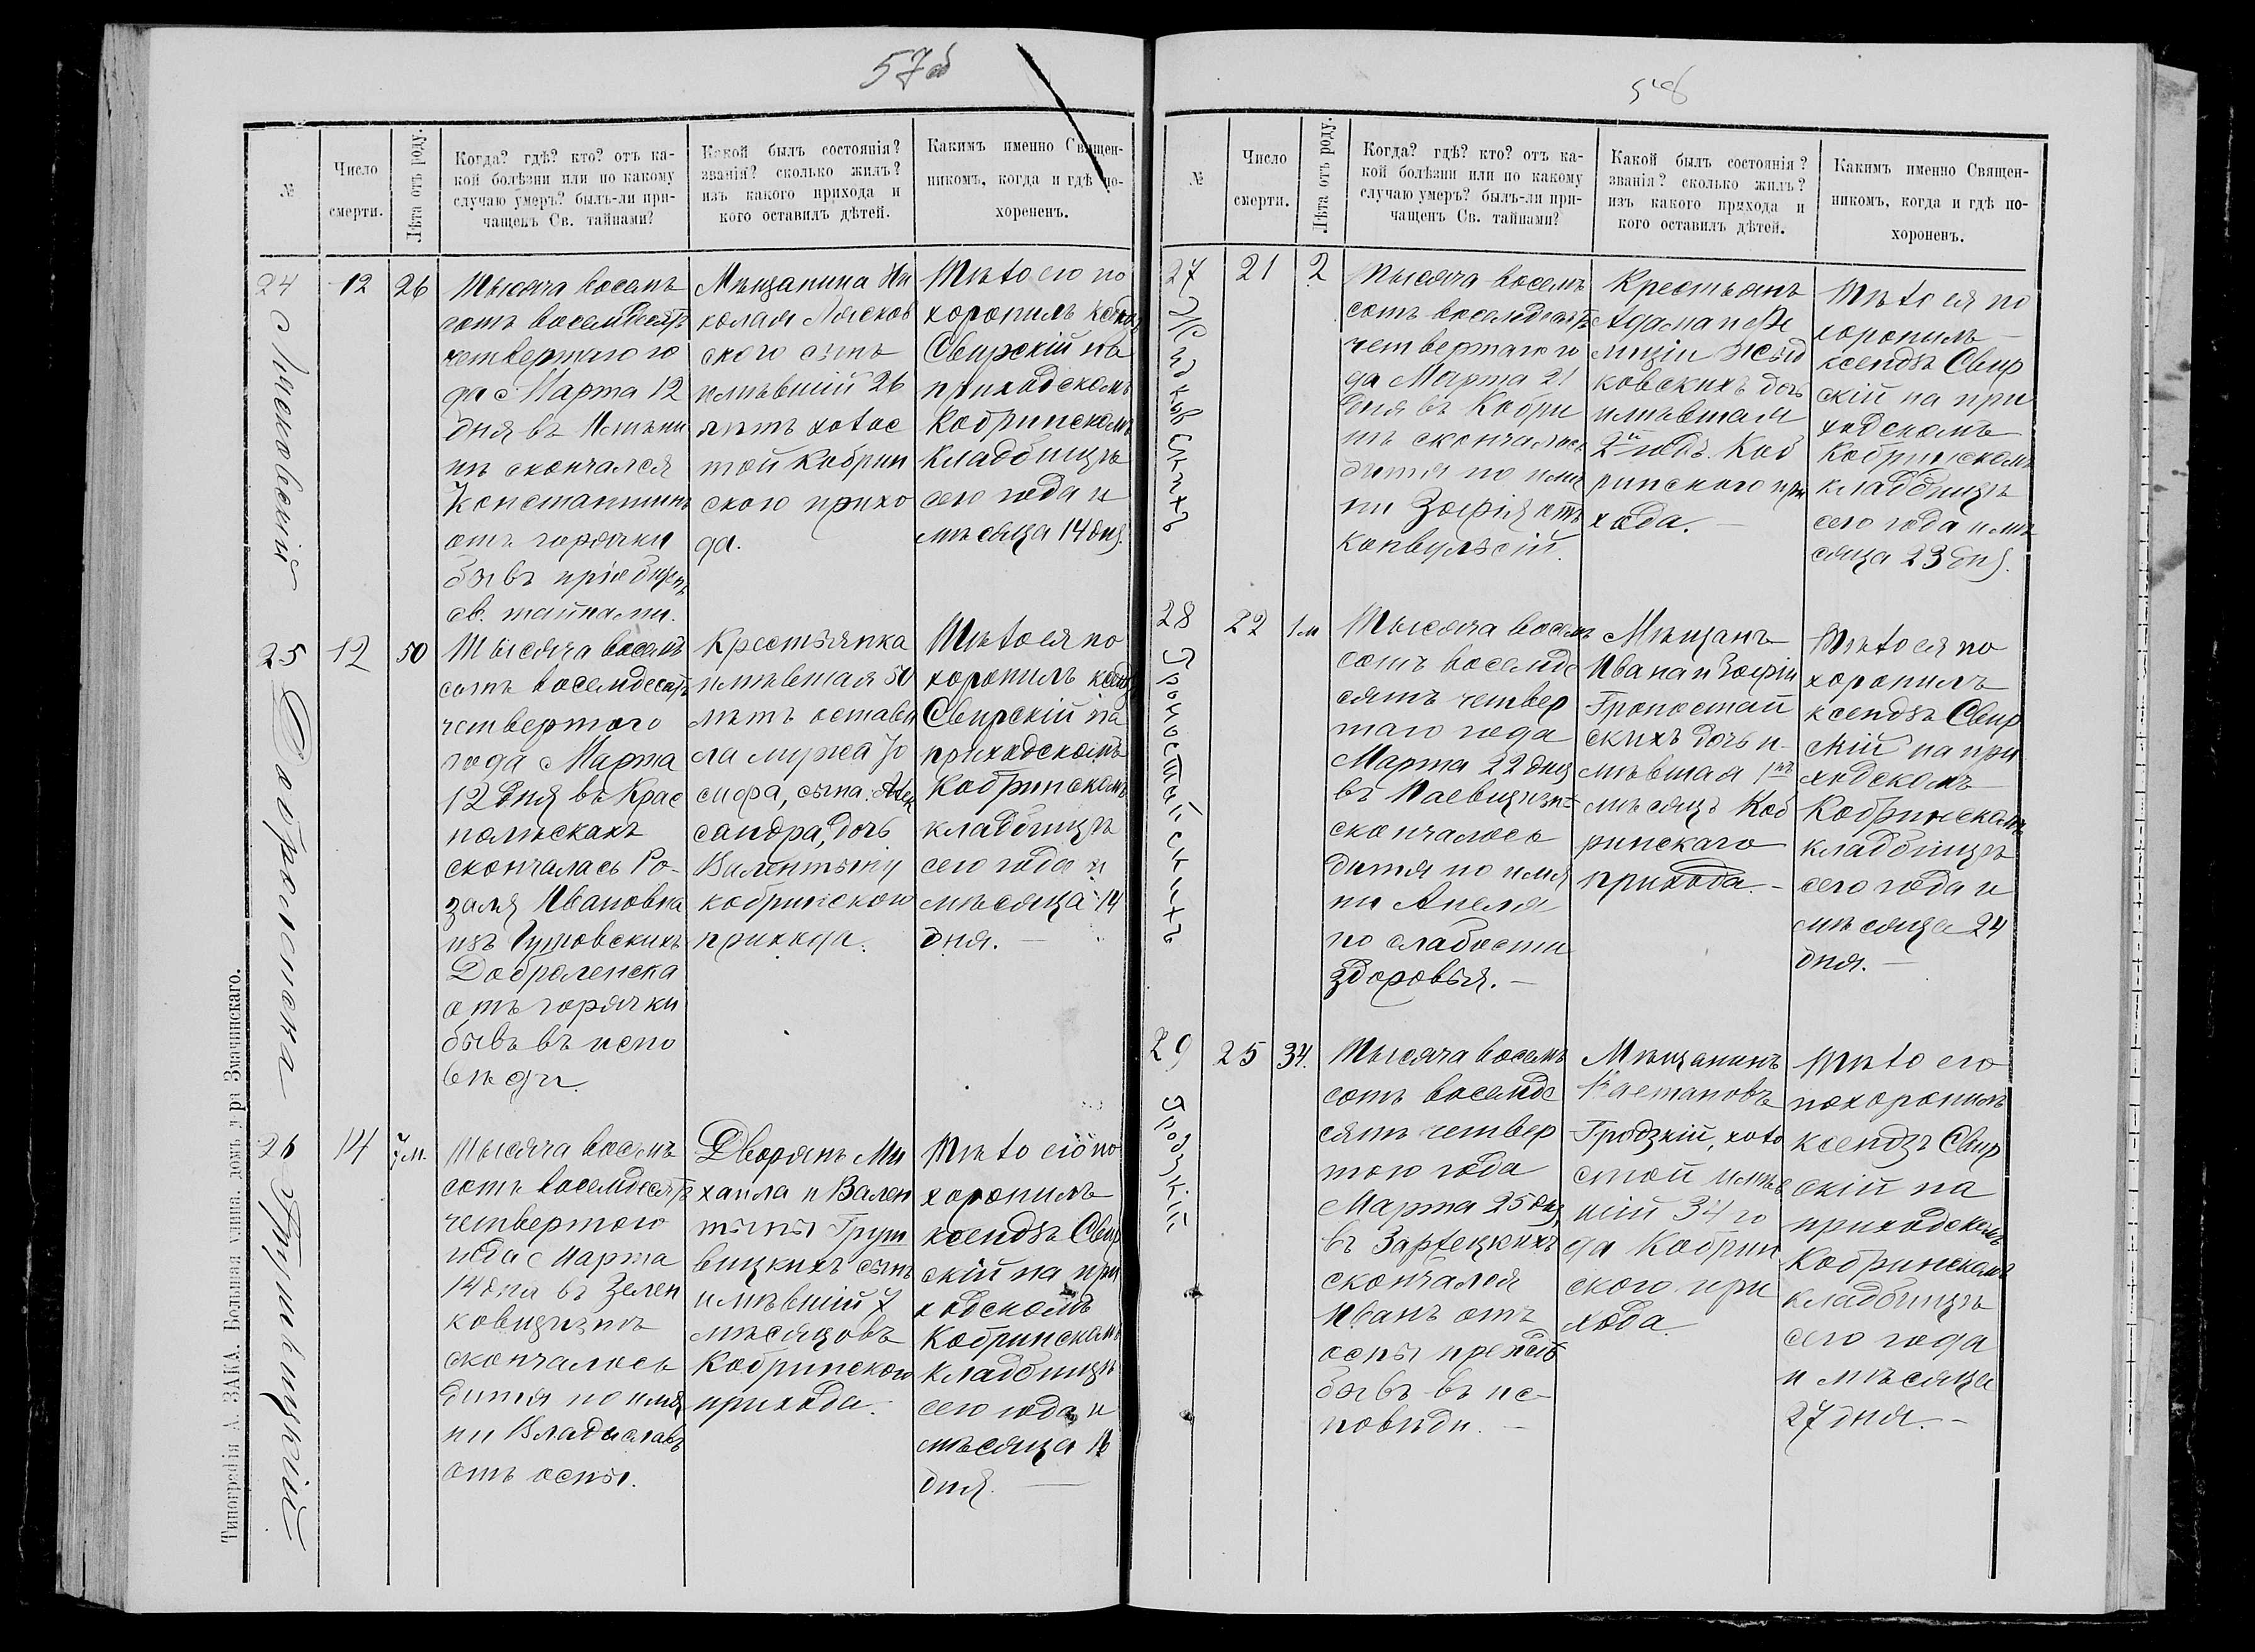 57об
№
Число
смерти.
Лѣта отъ роду.
Когда? гдѣ? кто? отъ ка-
кой болѣзни или по какому
случаю умеръ? былъ-ли при-
чащенъ Св. тайнами?
Какой былъ состоянія?
званія? сколько жилъ?
изъ какого прихода и
кого оставилъ дѣтей.
Какимъ именно Священ-
никомъ, когда и гдѣ по-
хороненъ.
24
Лясковскій
12
26
Тысяча восемь
сотъ восемдесятъ
четвертаго го
да Марта 12
дня въ Имѣни
нѣ скончался
Константинъ
отъ горячки
бывъ пріобщенъ
св. тайнами.
Мѣщанина Ни
колая Лясков
скаго сынъ
имѣвшій 26
лѣтъ холос
той Кобрин
скаго прихо
да.
Тѣло его по
хоронилъ ксендзъ
Свирскій на
приходскомъ
Кобринскомъ
кладбищѣ
сего года и
мѣсяца 14 дня.
25
Доброленска
12
50
Тысяча восемь
сотъ восемдесятъ
четвертаго
года Марта
12 дня въ Крас
полѣскахъ
скончалась Ро-
залія Ивановна
изъ Гутовскихъ
Доброленска
отъ горячки
бывъ въ испо
вѣди.
Крестьянка
имѣвшая 50
лѣтъ остави
ла мужа Іо
сифа, сына Алек
сандра, дочь
Валентыну
кобринскаго
прихода.
Тѣло ея по
хоронилъ ксендзъ
Свирскій на
приходскомъ
Кобринскомъ
кладбищѣ
сего года и
мѣсяца 14
дня.
26
Грушвицкій
14
7 м.
Тысяча восемь
сотъ восемдесятъ
четвертаго
года Марта
14 дня въ Зелен
ковщизнѣ
скончалось
дитя по име
ни Владыславъ
отъ оспы.
Дворянъ Ми
хаила и Вален
тыны Груш
вицкихъ сынъ
имѣвшій 7
мѣсяцовъ
Кобринскаго
прихода.
Тѣло его по
хоронилъ
ксендзъ Свир
скій на при
ходскомъ
Кобринскомъ
кладбищѣ
сего года и
мѣсяца 16
дня.
Типографія А. ЗАКА. Большая улица. домъ д-ра Змачинскаго.
58
№
Число
смерти.
Лѣта отъ роду.
Когда? гдѣ? кто? отъ ка-
кой болѣзни или по какому
случаю умеръ? былъ-ли при-
чащенъ Св. тайнами?
Какой былъ состоянія?
званія? сколько жилъ?
изъ какого прихода и
кого оставилъ дѣтей.
Какимъ именно Священ-
никомъ, когда и гдѣ по-
хороненъ.
27
Жидковскихъ
21
2
Тысяча восемь
сотъ восемдесятъ
четвертаго го
да Марта 21
дня въ Кобри
нѣ скончалось
дитя по име
ни Зофія отъ
конвульсій.
Крестьянъ
Адама и Фе
лиціи Жид
ковскихъ дочь
имѣвшая
2й годъ Коб
ринскаго при
хода.
Тѣло ея по
хоронилъ
ксендзъ Свир
скій на при
ходскомъ
Кобринскомъ
кладбищѣ
сего года и мѣ
сяца 23 дня.
28
Гроностайскихъ
22
1 м
Тысяча восемь
сотъ восемде
сятъ четвер
таго года
Марта 22 дня
въ Паевщизнѣ
скончалось
дитя по име
ни Анеля
по слабости
здоровья.
Мѣщанъ
Ивана и Зофіи
Гроностай
скихъ дочь и
мѣвшая 1нъ
мѣсяцъ Коб
ринскаго
прихода.
Тѣло ея по
хоронилъ
ксендзъ Свир
скій на при
ходскомъ
Кобринскомъ
кладбищѣ
сего года и
мѣсяца 24
дня.
29
Гродзкій
25
34.
Тысяча восемь
сотъ восемде
сятъ четвер
таго года
Марта 25 дня
въ Зарѣцкихъ
скончался
Иванъ отъ
оспы
бывъ въ ис-
повѣди.
Мѣщанинъ
Каетановъ
Гродзкій, холо
стой имѣв
шій 34 го
да Кобрин
скаго при
хода.
Тѣло его
похоронилъ
ксендзъ Свир
скій на
приходскомъ
Кобринскомъ
кладбищѣ
сего года
и мѣсяца
27 дня.